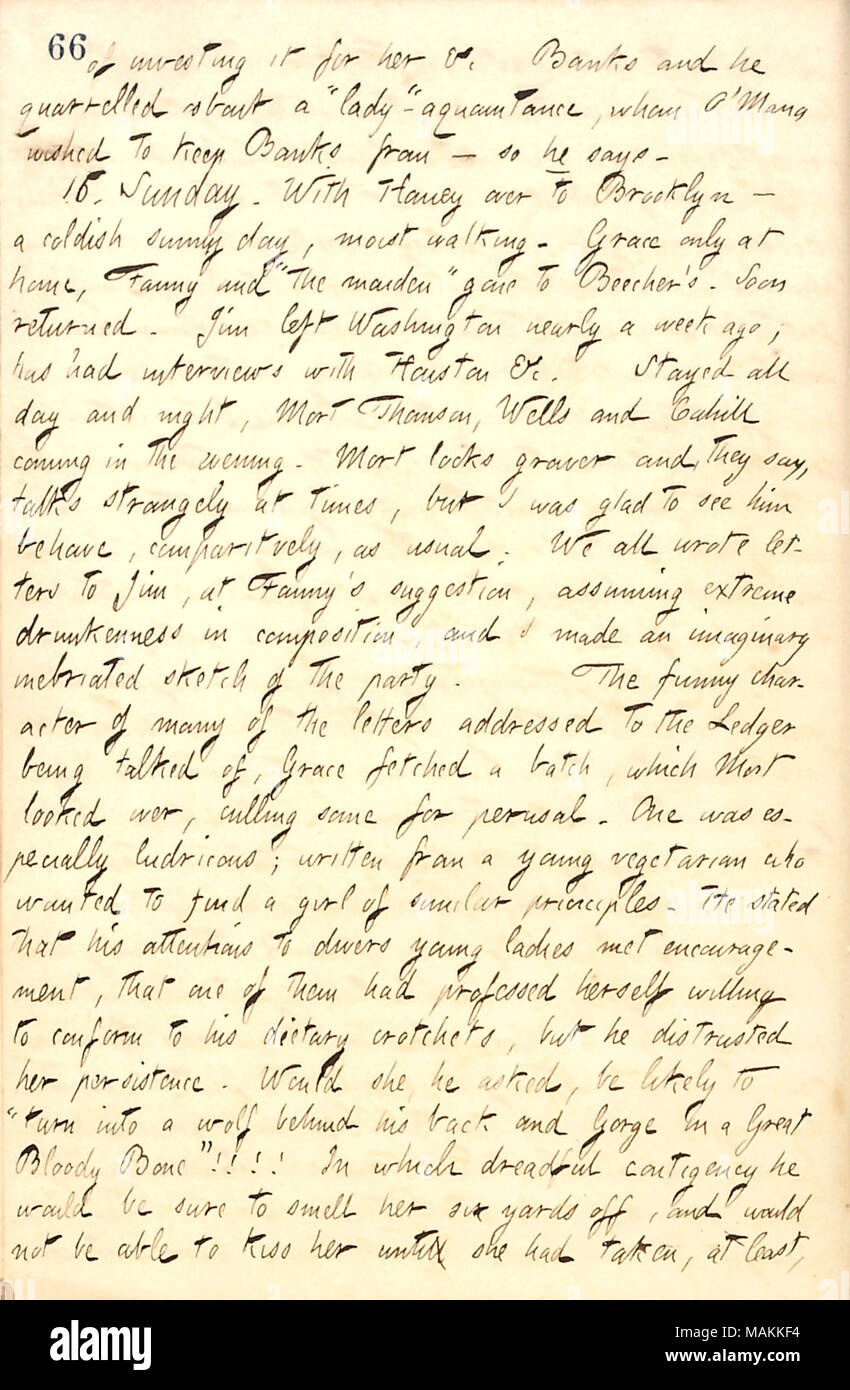 66
of investing it for her &c. Banks and he
quarrelled about a "lady"-aquaintance, whom O'Mana
wished to keep Banks from — so he says-
15. Sunday. With Haney over to Brooklyn —
a coldish sunny day, moist walking. Grace only at
home, Fanny and "the maiden" gone to Beecher's. Soon
returned. Jim left Washington nearly a week ago;
has had interviews with Houston &c. Stayed all
day and night, Mort Thomson, Wells and Cahill
coming in the evening. Mort looks graver and, they say,
talks strangely at times, but I was glad to see him
behave, comparitvely, as usual. We all wrote let-
ters to Jim, at Fanny's suggestion, assuming extreme
drunkenness in composition, and I made an imaginary
inebriated sketch of the party. The funny char-
acter of many of the letters addressed to the Ledger
being talked of, Grace fetched a batch, which Mort
looked over, culling some for perusal. One was es-
pecially ludricous; written from a young vegetarian who
wanted to find a girl of similar principles. He stated
that his attentions to divers young ladies met encourage-
ment, that one of them had professed herself willing
to conform to his dietary crotchets, but he distrusted
her persistence. Would she, he asked, be likely to
"turn into a wolf behind his back and Gorge in a Great
Bloody Bone"!!!! In which dreadful contigency he
would be sure to smell her six yards off, and would
not be able to kiss her until she had taken, at least,
alamy
Image ID: MAKKF4
www.alamy.com